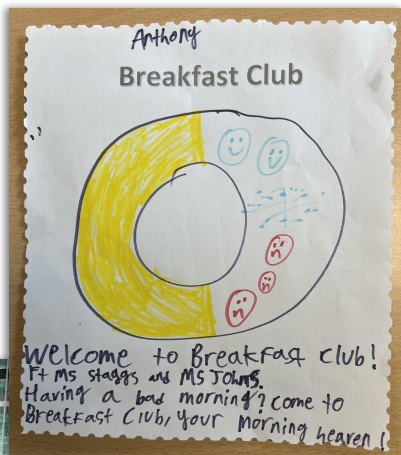 Anthony
Breakfast Club
Welcome to Breakfast club!
Ft Ms staggs and Ms Johns.
Having a bad morning? come to
Breakfast Club, your Morning heaven!